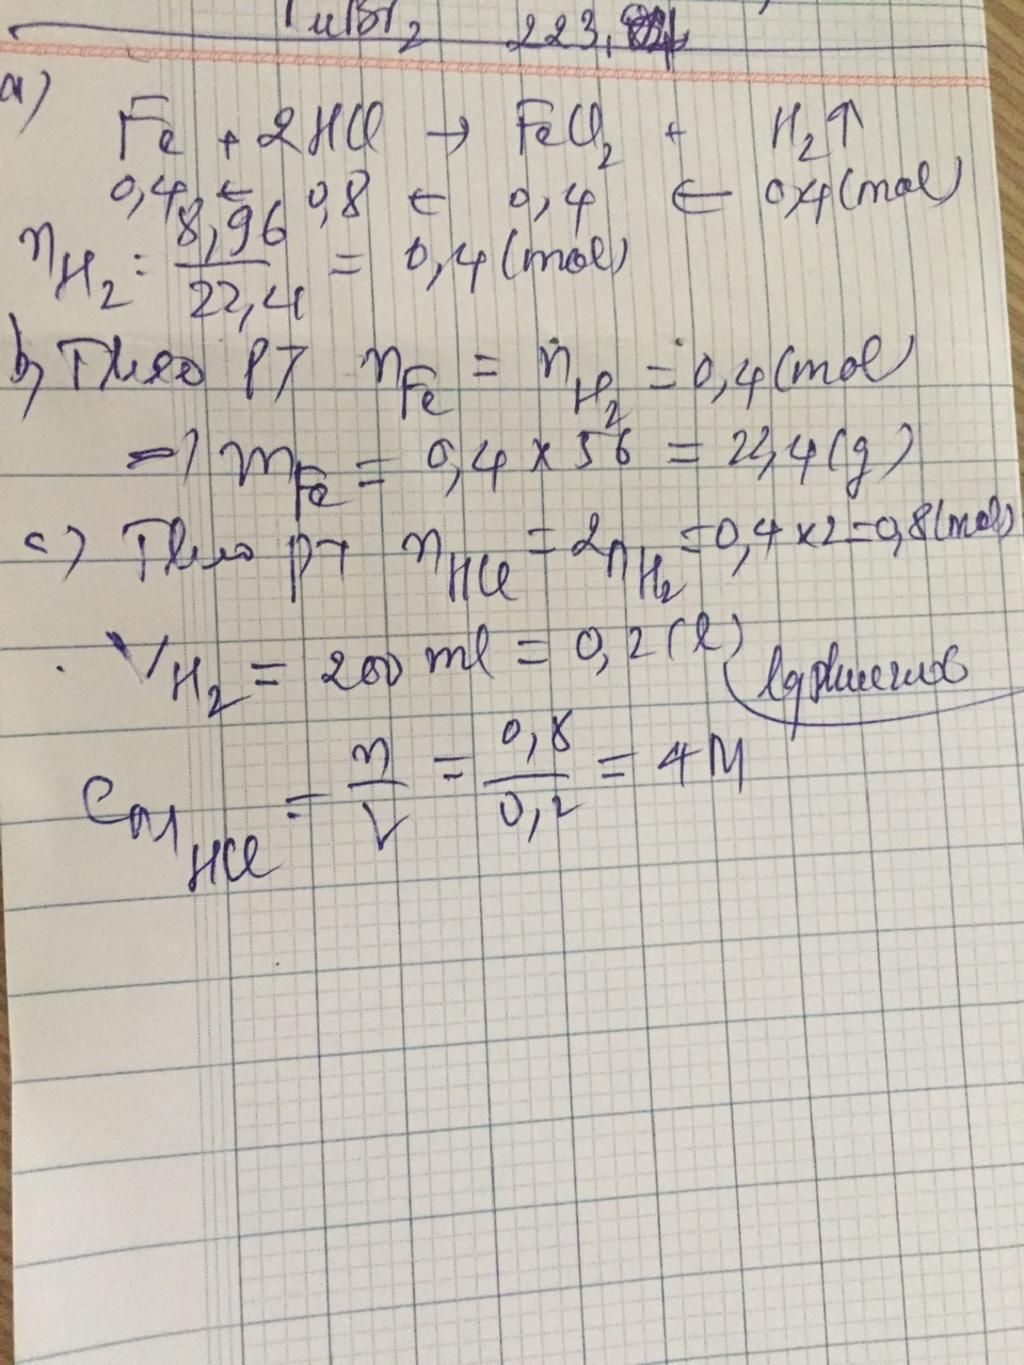 CuBr₂ 223,
a)
Fe + 2HCl → FeCl₂ + H₂↑
0,4 ← 0,8 ← 0,4 ← 0,4 (mol)
nH₂ = 8,96/22,4 = 0,4 (mol)
b) Theo PT nFe = nH₂ = 0,4 (mol)
=> mFe = 0,4 x 56 = 22,4 (g)
c) Theo pt nHCl = 2nH₂ = 0,4 x 2 = 0,8 (mol)
VH₂ = 200 ml = 0,2 (l)
CM HCl = n/V = 0,8/0,2 = 4M